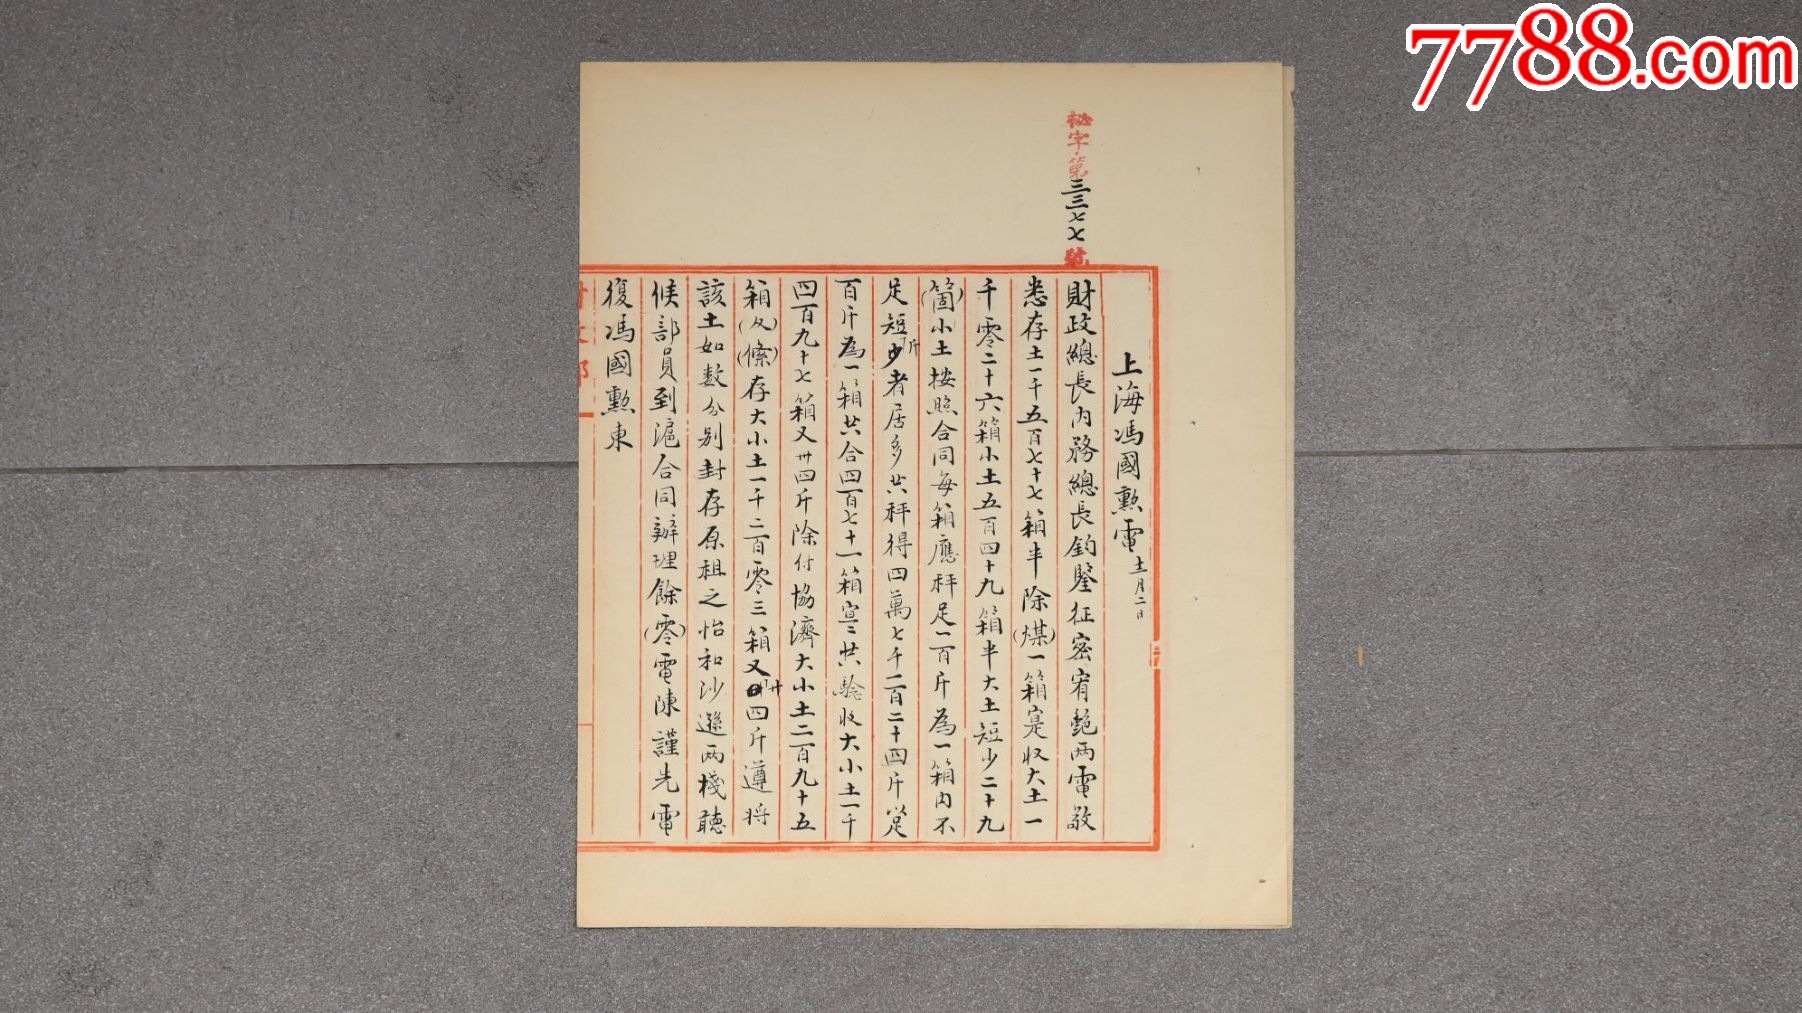 7788.com
秘字第三三七七號
上海馮國勲電 十二月二日
財政總長內務總長鈞鑒征密宥艶兩電敬
悉存土一千五百七十七箱半除(煤)一箱寔收大土一
千零二十六箱小土五百四十九箱半大土短少二十九
(箇)小土按照合同每箱應秤足一百斤為一箱內不
足斤短少者居多共秤得四萬七千二百二十四斤以足
百斤為一箱共合四百七十一箱寔共驗收大小土一千
四百九十七箱又卅四斤除付協濟大小土二百九十五
箱(及)(條)存大小土一千二百零三箱又卅四斤遵將
該土如數分別封存原租之怡和沙遜兩棧聽
候部員到滬合同辦理餘(零)電陳謹先電
復馮國勲東